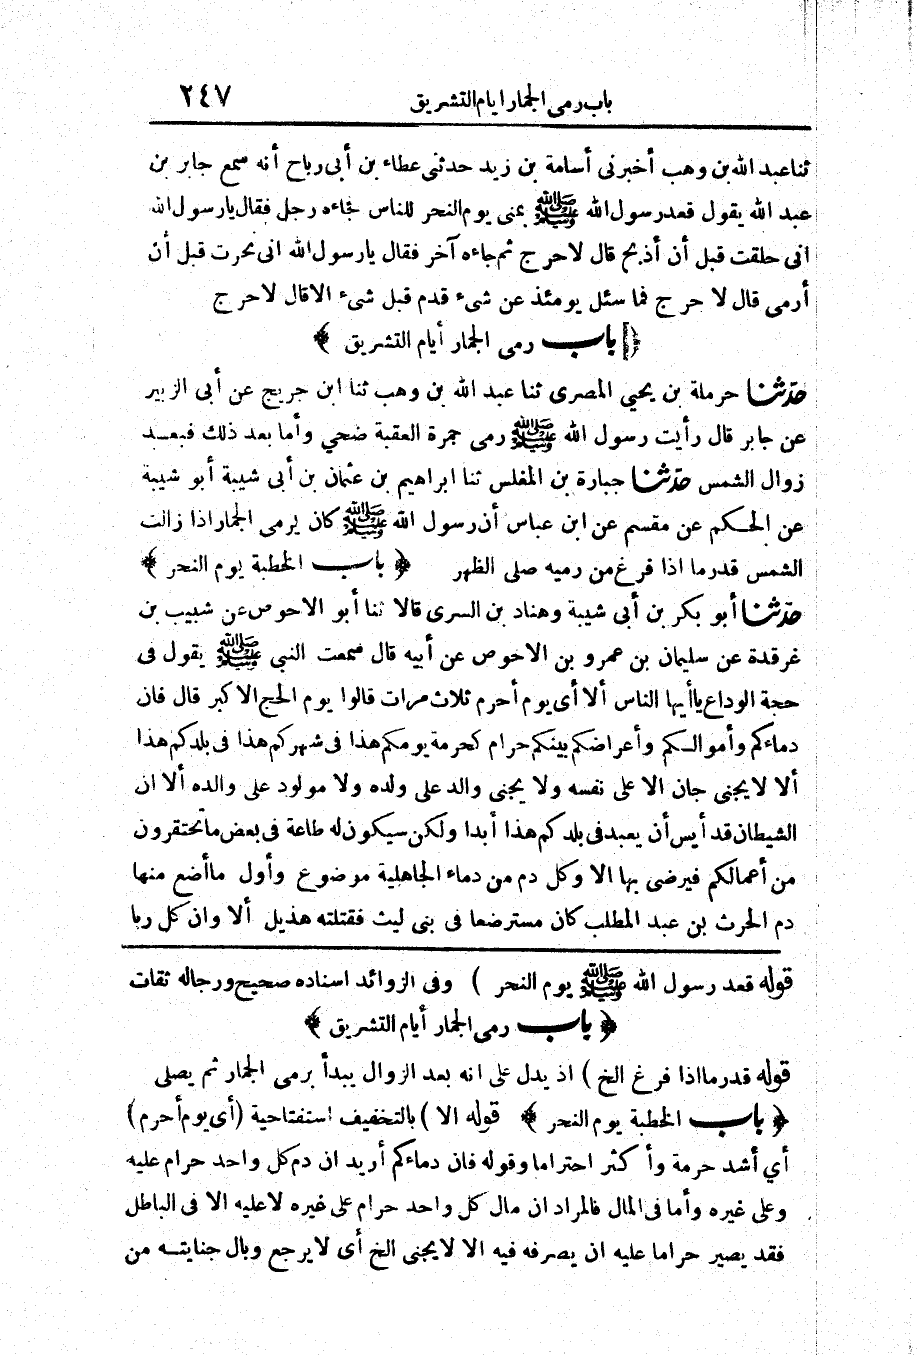 باب رمى الجمار أيام التشريق ٢٤٧
ثنا عبد الله بن وهب أخبرنى أسامة بن زيد حدثنى عطاء بن أبى رباح أنه سمع جابر بن
عبد الله يقول قعد رسول الله ﷺ بمنى يوم النحر للناس فجاءه رجل فقال يارسول الله
انى حلقت قبل أن أذبح قال لا حرج ثم جاءه آخر فقال يارسول الله انى نحرت قبل أن
أرمى قال لا حرج فما سئل يومئذ عن شىء قدم قبل شىء الا قال لا حرج
﴿ باب رمى الجمار أيام التشريق ﴾
حدّثنا حرملة بن يحيي المصرى ثنا عبد الله بن وهب ثنا ابن جريج عن أبى الزبير
عن جابر قال رأيت رسول الله ﷺ رمى جمرة العقبة ضحي وأما بعد ذلك فبعد
زوال الشمس حدّثنا جبارة بن المغلس ثنا ابراهيم بن عثمان بن أبى شيبة أبو شيبة
عن الحكم عن مقسم عن ابن عباس أن رسول الله ﷺ كان يرمى الجمار اذا زالت
الشمس قدر ما اذا فرغ من رميه صلى الظهر ﴿ باب الخطبة يوم النحر ﴾
حدّثنا أبو بكر بن أبى شيبة وهناد بن السرى قالا ثنا أبو الاحوص عن شبيب بن
غرقدة عن سليمان بن عمرو بن الاحوص عن أبيه قال سمعت النبي ﷺ يقول فى
حجة الوداع ياأيها الناس ألا أى يوم أحرم ثلاث مرات قالوا يوم الحج الاكبر قال فان
دماءكم وأموالكم وأعراضكم بينكم حرام كحرمة يومكم هذا فى شهركم هذا فى بلدكم هذا
ألا لا يجنى جان الا على نفسه ولا يجنى والد على ولده ولا مولود على والده ألا ان
الشيطان قد أيس أن يعبد فى بلدكم هذا أبدا ولكن سيكون له طاعة فى بعض ما تحتقرون
من أعمالكم فيرضى بها الا وكل دم من دماء الجاهلية موضوع وأول ماأضع منها
دم الحرث بن عبد المطلب كان مسترضعا فى بنى ليث فقتلته هذيل ألا وان كل ربا
قوله قعد رسول الله ﷺ يوم النحر ) وفى الزوائد اسناده صحيح ورجاله ثقات
﴿ باب رمى الجمار أيام التشريق ﴾
قوله قدر مااذا فرغ الخ ) اذ يدل على انه بعد الزوال يبدأ برمى الجمار ثم يصلى
﴿ باب الخطبة يوم النحر ﴾ قوله الا ) بالتخفيف استفتاحية (أى يوم أحرم )
أي أشد حرمة وأكثر احتراما وقوله فان دماءكم أريد ان دم كل واحد حرام عليه
وعلى غيره وأما فى المال فالمراد ان مال كل واحد حرام على غيره لا عليه الا فى الباطل
فقد يصير حراما عليه ان يصرفه فيه الا لا يجنى الخ أى لا يرجع وبال جنايته من